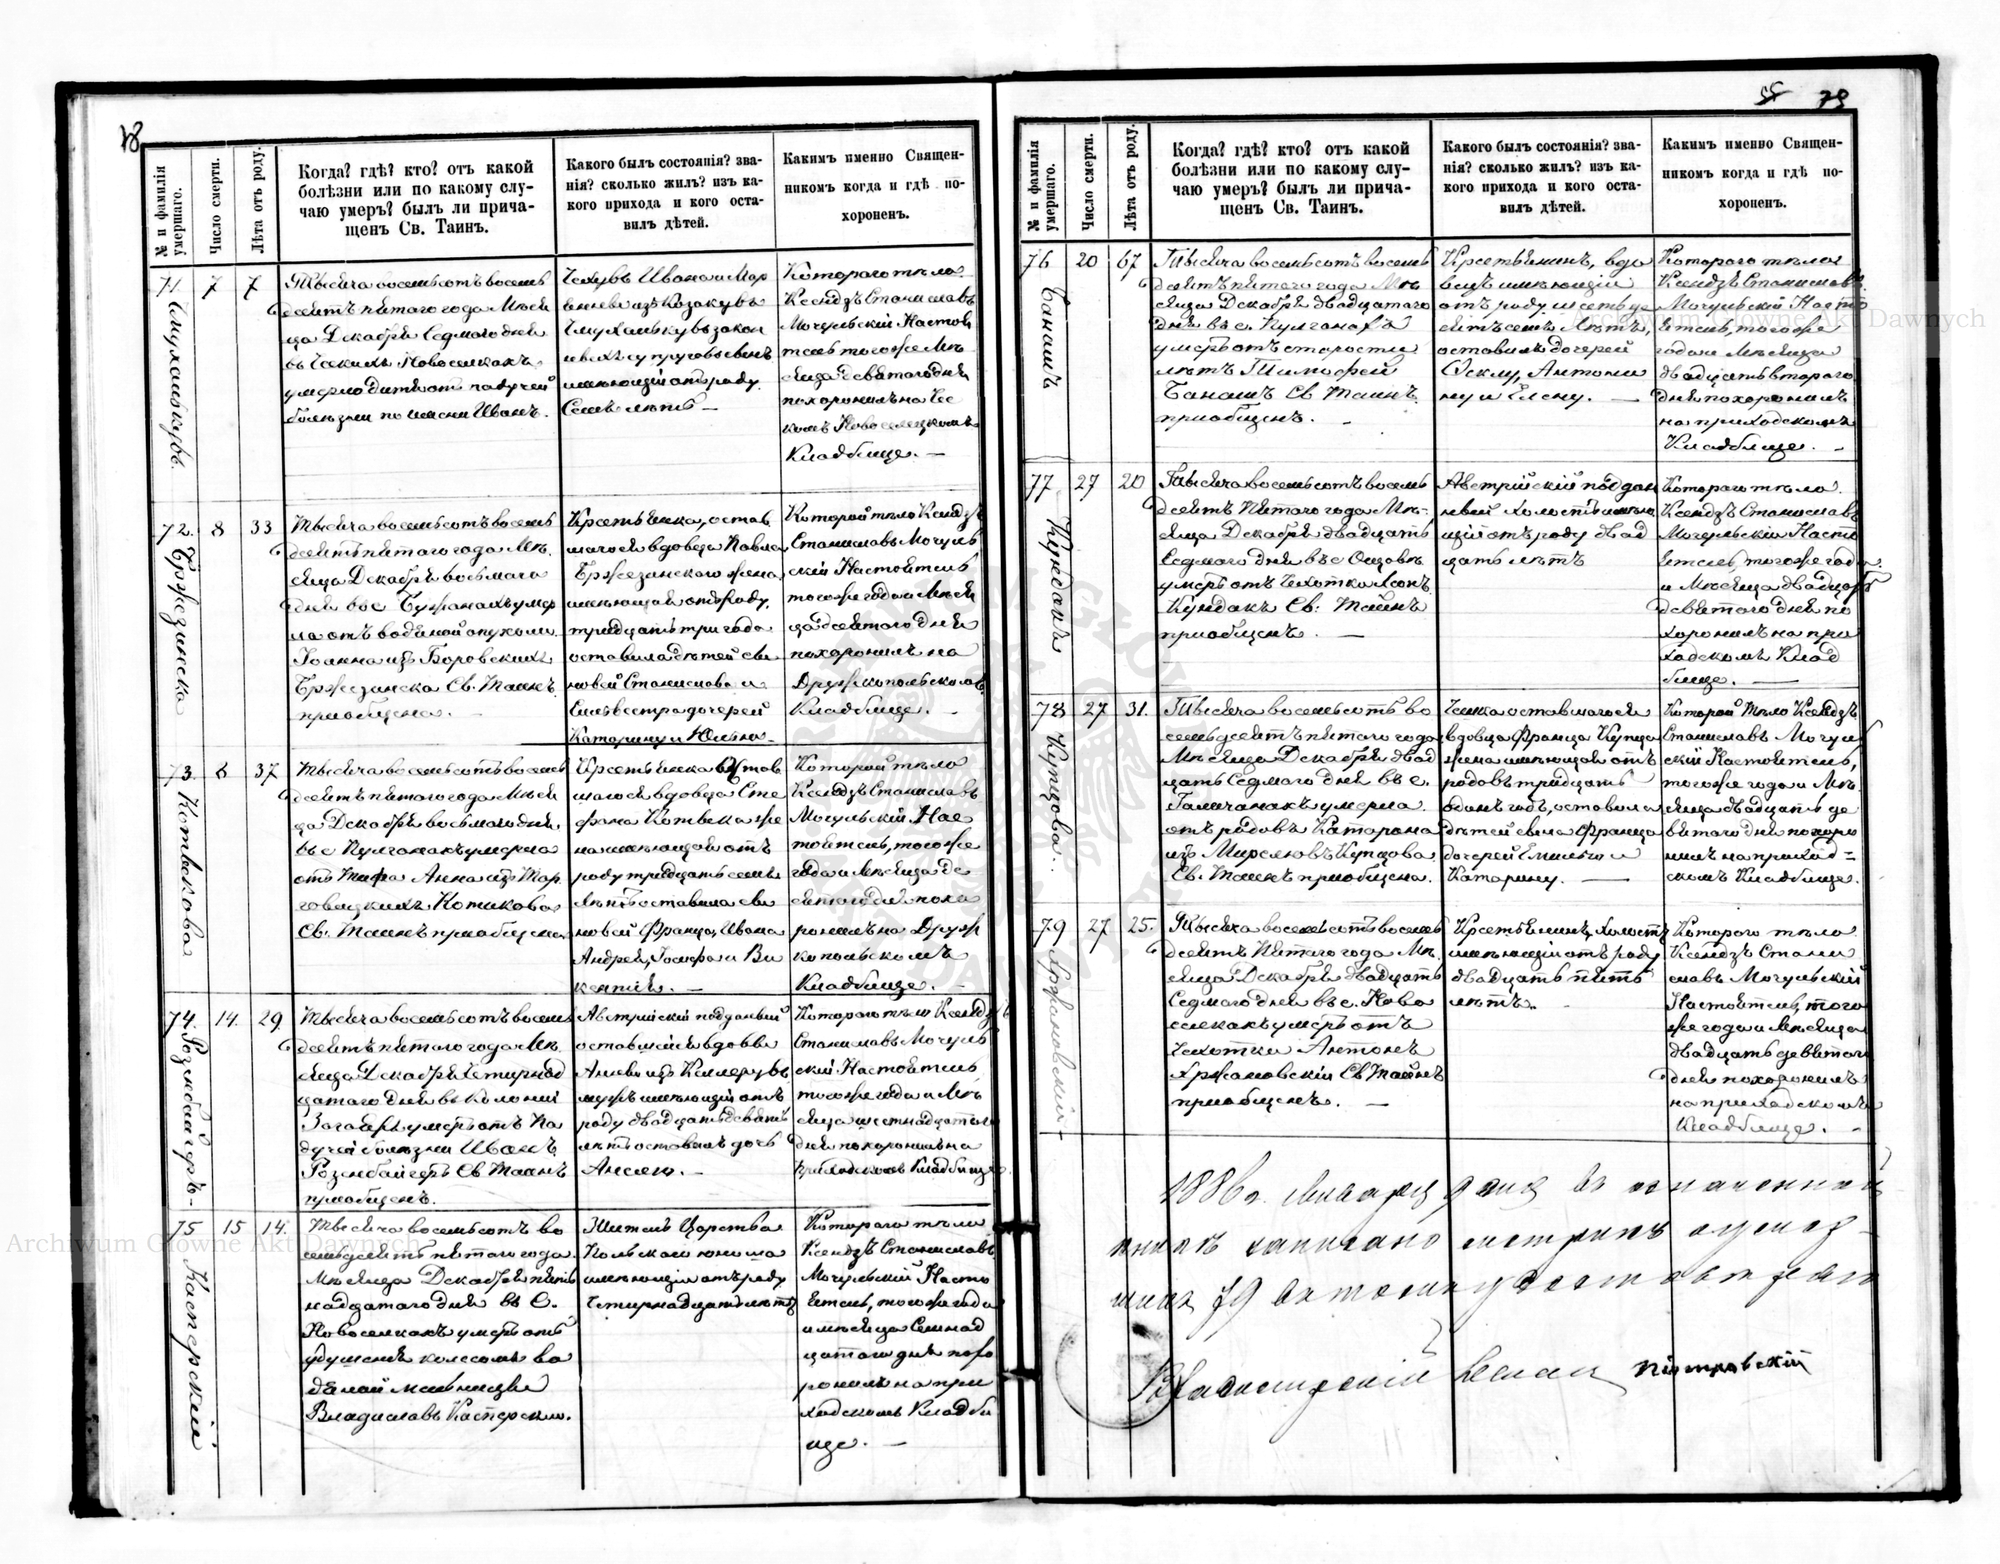 78
№ и фамилія умершаго.
Число смерти.
Лѣта отъ роду.
Когда? гдѣ? кто? отъ какой
болѣзни или по какому слу-
чаю умеръ? былъ ли прича-
щенъ Св. Таинъ.
Какого былъ состоянія? зва-
нія? сколько жилъ? изъ ка-
кого прихода и кого оста-
вилъ дѣтей.
Какимъ именно Священ-
никомъ когда и гдѣ по-
хороненъ.
71.
7
7
Тысяча восемьсотъ восемь
десятъ пятаго года Мѣся
ца Декабря Седмого дня
въ Ческихъ Новоселкахъ
умерло дитя отъ падучей
болѣзни по имени Иванъ.
имѣющій отъ роду
Семь лѣтъ —
Котораго тѣло
Ксендзъ Станиславъ
Могульскій Настоя
тель того же Мѣ
сяца девятаго дня
похоронилъ на Чес
комъ Новоселецкомъ
Кладбище. —
72.
Бржезинска
8
33
Тысяча восемьсотъ восемь
десятъ пятаго года Мѣ
сяца Декабря восьмаго
дня въ с Бужанахъ умер
ла отъ водяной опухоли
Іоанна изъ Боровскихъ
Бржезинска Св. Таинъ
приобщена. —
Крестьянка, остав
шагося вдовца Павла
Бржезинского жена
имѣющая отъ роду
тридцать три года
оставила дѣтей сы
новей Станислава и
Сильвестра дочерей
Катарину и Юлью —
Которой тѣло Ксендзъ
Станиславъ Могуль
скій Настоятель
того же года и Мѣся
ца десятого дня
похоронилъ на
Дружкопольскомъ
Кладбище. —
73.
Котькова
8
37
Тысяча восемьсотъ восемь
десятъ пятаго года Мѣся
ца Декабря восьмого дня
въ с Пулганахъ умерла
отъ тифа Анна изъ Тар
говицкихъ Котькова
Св. Таинъ приобщена
Крестьянка Остав
шагося вдовца Сте
фана Котька же
на имѣющая отъ
роду тридцать семь
лѣтъ оставила сы
новей Франца, Ивана
Андрея, Іосифа и Ви
кентія. —
Которой тѣло
Ксендзъ Станиславъ
Могульскій Нас
тоятель, того же
года и Мѣсяца де
сятого дня похо
ронилъ на Друж
копольскомъ
Кладбище. —
74.
Розенбайгеръ
14.
29
Тысяча восемьсотъ восемь
десятъ пятаго года Мѣ
сяца Декабря Четырнад
цатаго дня въ Колоніи
умеръ отъ Па
дучей болѣзни Иванъ
Розенбайгеръ Св Таинъ
приобщенъ.
Австрійскій подданый
оставшейся вдовы
мужъ имѣющій отъ
роду двадцать девять
лѣтъ оставилъ дочь
Котораго тѣло Ксендзъ
Станиславъ Могуль
скій Настоятель
того же года и Мѣ
сяца шестнадцатого
дня похоронилъ на
приходскомъ Кладбище
75
Касперскій
15
14.
Тысяча восемьсотъ во
семьдесятъ пятаго года
Мѣсяца Декабря пят
надцатаго дня въ С.
Новоселкахъ умеръ отъ
удушенія колесомъ во
дяной мельницы
Владиславъ Касперскій.
Житель Царства
Польскаго юноша
имѣющій отъ роду
Четырнадцать лѣтъ
Котораго тѣло
Ксендзъ Станиславъ
Могульскій Насто
ятель, того же года
и мѣсяца Семнад
цатаго дня похо
ронилъ на при
ходскомъ Кладби
ще. —
55 79
№ и фамилія умершаго.
Число смерти.
Лѣта отъ роду.
Когда? гдѣ? кто? отъ какой
болѣзни или по какому слу-
чаю умеръ? былъ ли прича-
щенъ Св. Таинъ.
Какого былъ состоянія? зва-
нія? сколько жилъ? изъ ка-
кого прихода и кого оста-
вилъ дѣтей.
Какимъ именно Священ-
никомъ когда и гдѣ по-
хороненъ.
76
Банашъ
20
67
Тысяча восемьсотъ восемь
десятъ пятаго года Мѣ
сяца Декабря двадцатаго
дня въ с. Пулганахъ
умеръ отъ старости
лѣтъ Тимофей
Банашъ Св Таинъ
приобщенъ. —
Крестьянинъ, вдо
вецъ имѣющій
отъ роду шестьде
сятъ семь лѣтъ,
оставилъ дочерей
Феклу, Антони
ну и Елену. —
Котораго тѣло
Ксендзъ Станиславъ
Могульскій Насто
ятель, того же
года и Мѣсяца
двадцать второго
дня похоронилъ
на приходскомъ
Кладбище. —
77
Кундакъ
27
20
Тысяча восемьсотъ восемь
десятъ Пятаго года Мѣ-
сяца Декабря двадцать
Седмаго дня въ с
умеръ отъ чехотки Леонъ
Кундакъ Св. Таинъ
приобщенъ. —
Австрійскій поддан
ный холостъ имѣю
щій отъ роду двад
цать лѣтъ
Котораго тѣло
Ксендзъ Станиславъ
Могульскій Насто
ятель, того же года
и Мѣсяца двадцать
девятаго дня по
хоронилъ на при
ходскомъ Клад
бище. —
78
Купцова.
27
31.
Тысяча восемьсотъ во
семьдесятъ пятаго года
Мѣсяца Декабря двад
цать Седмого дня въ с.
Галичанахъ умерла
отъ родовъ Катарина
изъ Купцова
Св. Таинъ приобщена.
Чешка оставшагося
вдовца Франца Купца
жена имѣющая отъ
родовъ тридцать
одинъ годъ, оставила
дѣтей сына Франца
дочерей Емилью и
Катарину. —
Которой Тѣло Ксендзъ
Станиславъ Могуль
скій Настоятель,
того же года и Мѣ
сяца двадцать де
вятого дня похоро
нилъ на приход=
скомъ Кладбище.
79
Хржановскій
27
25.
Тысяча восемьсотъ восемь
десятъ Пятаго года Мѣ
сяца Декабря двадцать
Седмаго дня въ с. Ново
селкахъ умеръ отъ
чехотки Антонъ
Хржановскій Св Таинъ
приобщенъ. —
Крестьянинъ, холостъ
имѣющій отъ роду
двадцать пять
лѣтъ.
Котораго тѣло
Ксендзъ Стани
славъ Могульскій
Настоятель, того
же года и Мѣсяца
двадцать девятаго
дня похоронилъ
на приходскомъ
Кладбище. —
1886 г. Января 9 дня въ означенной
книгѣ записано метрикъ о умер-
шихъ 79 въ томъ удостовѣряю
Владимірскій Деканъ Піотровскій
Archiwum Główne Akt Dawnych
Archiwum Główne Akt Dawnych